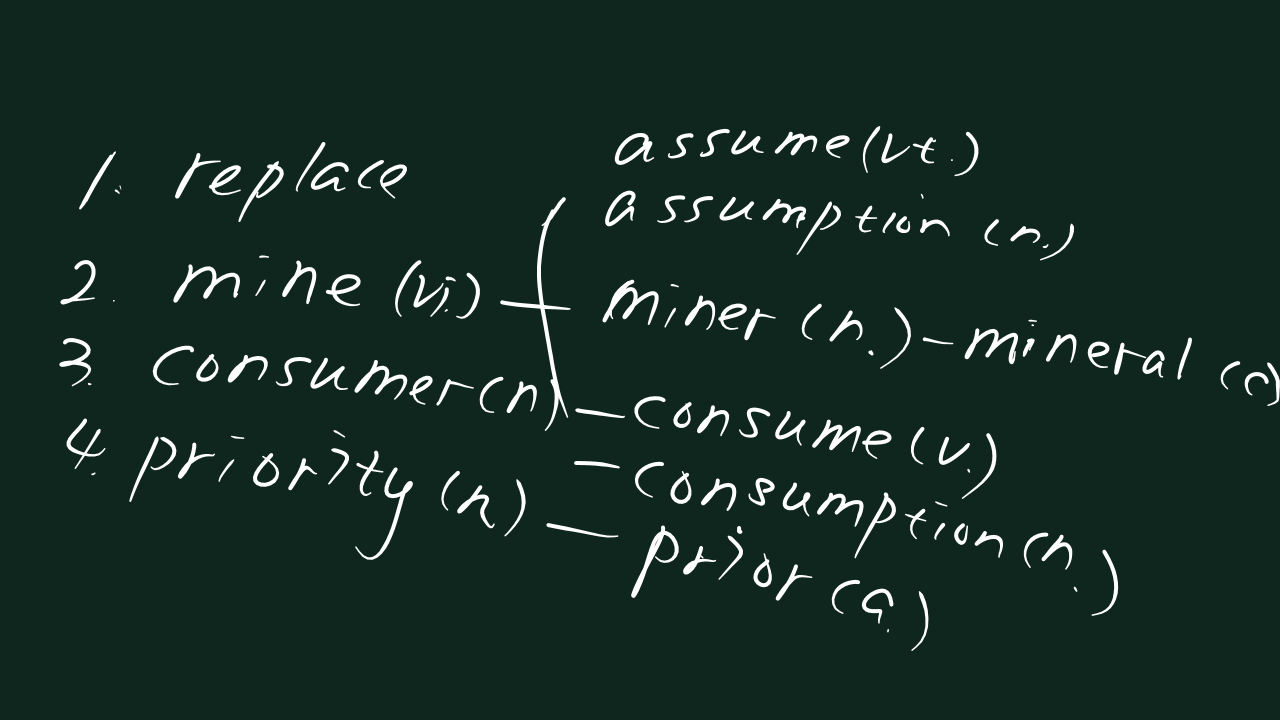 assume(vt.)
1. replace
assumption (n.)
2. mine (vi.) — miner (n.) - mineral
3. consumer(n) — consume(v.)
— consumption(n.)
4. priority (n) — prior (a.)